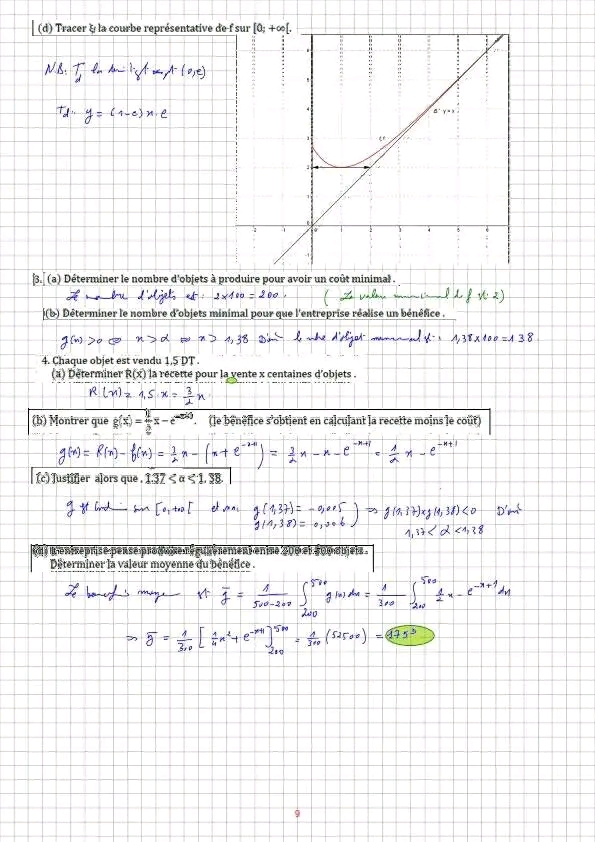 (d) Tracer ξ la courbe représentative de f sur [0; +∞[.
N.B: Td (0,e)
Td: y = (1-e)x + e
Δ: y = x
-2 -1 0 1 2 3 4 5 6
3. (a) Déterminer le nombre d'objets à produire pour avoir un coût minimal .
Le nombre d'objets est : 2x100 = 200 . ( La valeur minimal de f est 2)
(b) Déterminer le nombre d'objets minimal pour que l'entreprise réalise un bénéfice .
g(x) > 0 ⇔ x > α ⇔ x > 1,38 D'où le nbre d'objet minimal est : 1,38x100 = 138
4. Chaque objet est vendu 1,5 DT .
(a) Déterminer R(x) la recette pour la vente x centaines d'objets .
R(x) = 1,5 x = 3/2 x
(b) Montrer que g(x) = x - e . (le bénéfice s'obtient en calculant la recette moins le coût)
g(x) = R(x) - f(x) = 3/2 x - (x + e^{-x+1}) = 3/2 x - x - e^{-x+1} = 1/2 x - e^{-x+1}
(c) Justifier alors que . 1.37 < α < 1.38.
g est continue sur [0,+∞[ et on a g(1,37) = -0,005 ⇒ g(1,37)xg(1,38) < 0 D'où
g(1,38) = 0,006 1,37 < α < 1,38
(d) L'entreprise pense produire régulièrement entre 200 et 500 objets .
Déterminer la valeur moyenne du bénéfice .
Le bénéfice moyen est ḡ = 1/(500-200) ∫_{200}^{500} g(x) dx = 1/300 ∫_{200}^{500} 1/2 x - e^{-x+1} dx
⇒ ḡ = 1/300 [ 1/4 x² + e^{-x+1} ]_{200}^{500} = 1/300 (52500) = 175
9